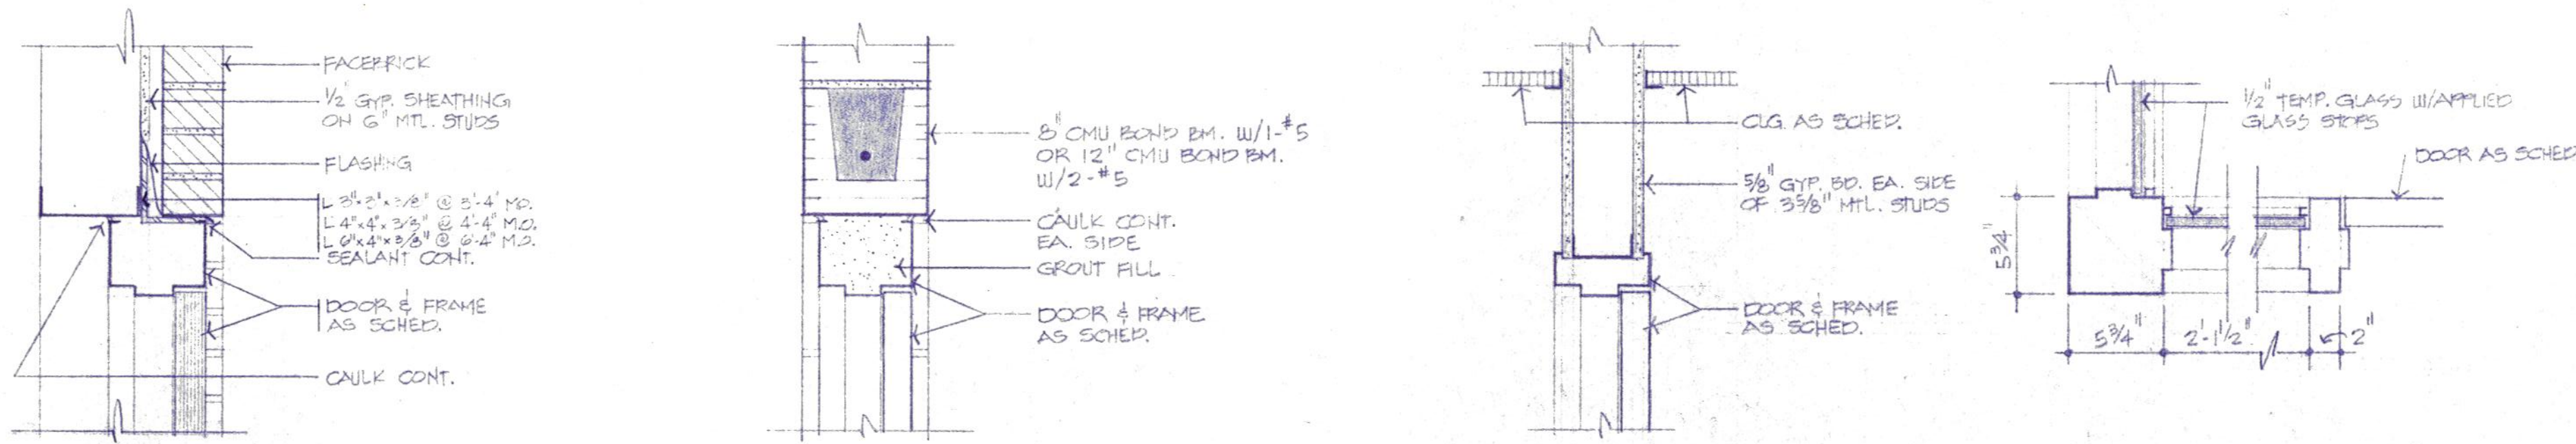 FACEBRICK
1/2" GYP. SHEATHING
ON 6" MTL. STUDS
FLASHING
L 3"x3"x3/8" @ 3'-4" M.O.
L 4"x4"x3/8" @ 4'-4" M.O.
L 6"x4"x3/8" @ 6'-4" M.O.
SEALANT CONT.
DOOR & FRAME
AS SCHED.
CAULK CONT.
8" CMU BOND BM. W/1-#5
OR 12" CMU BOND BM.
W/2-#5
CAULK CONT.
EA. SIDE
GROUT FILL
DOOR & FRAME
AS SCHED.
CLG. AS SCHED.
5/8" GYP. BD. EA. SIDE
OF 3 5/8" MTL. STUDS
DOOR & FRAME
AS SCHED.
1/2" TEMP. GLASS W/APPLIED
GLASS STOPS
DOOR AS SCHED
5 3/4"
5 3/4"
2'-1 1/2"
2"